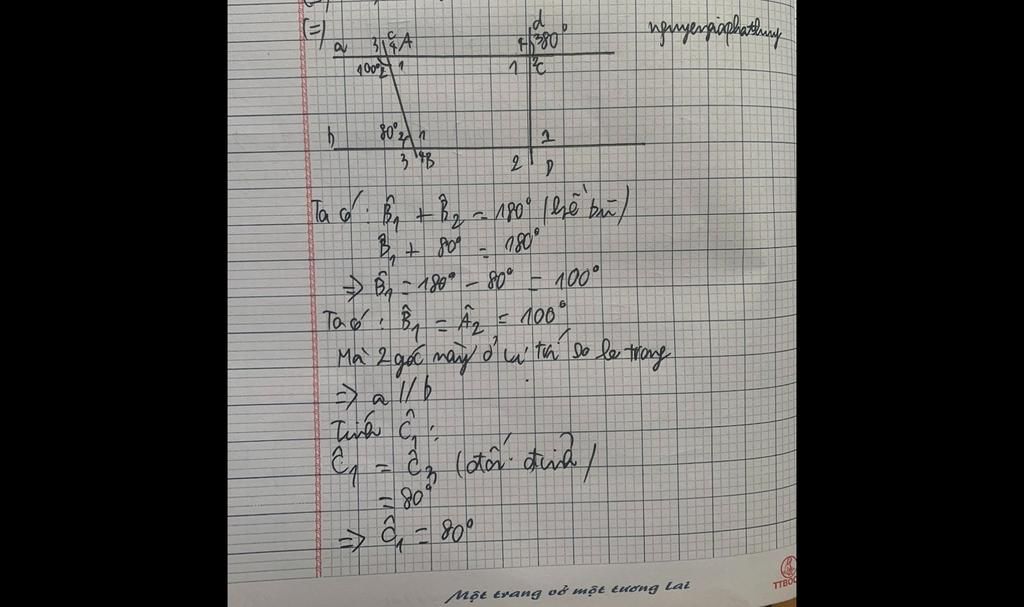 (=)
nguyengiaphathung
d
c
a 3 4 A
4 3 80°
100° 2 1
1 2 C
b 80° 2 1
1
3 4 B
2 D
Ta có: B̂₁ + B̂₂ = 180° (kề bù)
B̂₁ + 80° = 180°
=> B̂₁ = 180° - 80° = 100°
Ta có: B̂₁ = Â₂ = 100°
Mà 2 góc này ở vị trí so le trong
=> a // b
Tính Ĉ₁:
Ĉ₁ = Ĉ₃ (đối đỉnh)
= 80°
=> Ĉ₁ = 80°
Một trang vở một tương lai
TTBOOK